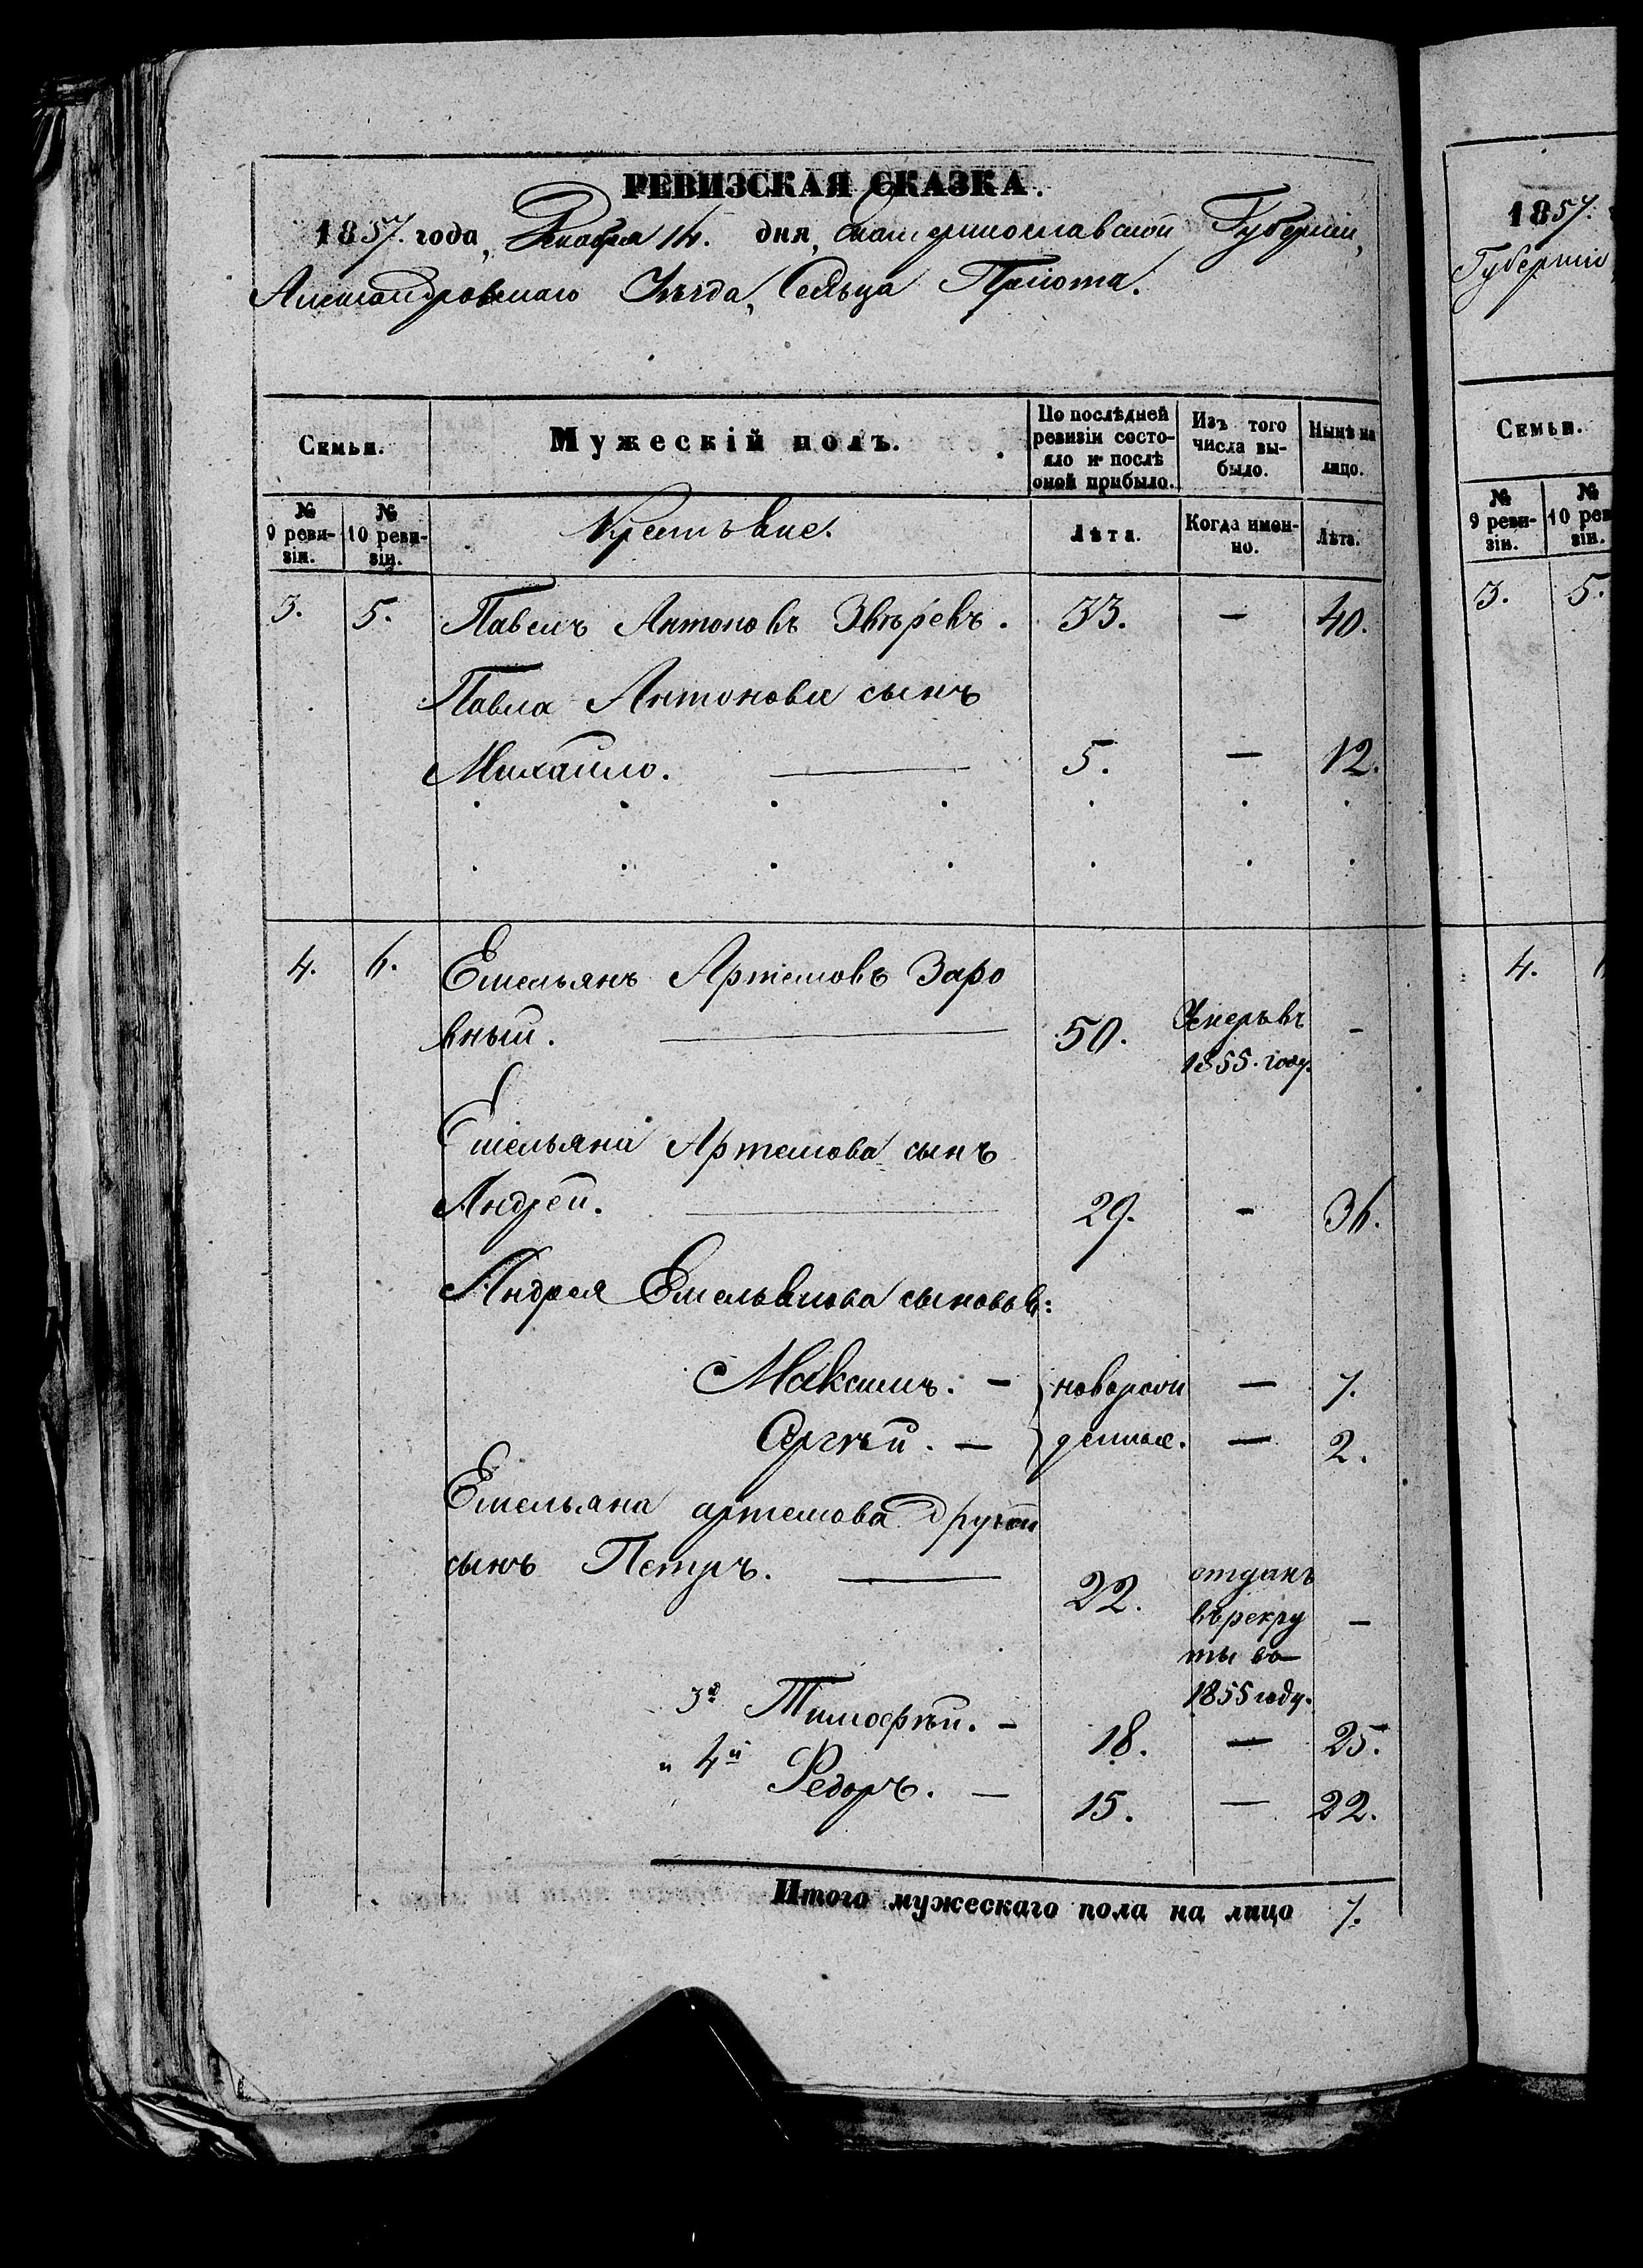 РЕВИЗСКАЯ СКАЗКА.
1857. года, Декабря 14. дня, Екатеринославской Губерніи,
Александровскаго Уѣзда, Сельца Пріюта.
Семьи.
Мужескій полъ.
По послѣдней ревизіи состояло и послѣ оной прибыло.
Изъ того числа выбыло.
Нынѣ на лицо.
№ 9 ревизіи.
№ 10 ревизіи.
Крестьяне.
Лѣта.
Когда именно.
Лѣта.
3. 5. Павелъ Антоновъ Звѣревъ. 33. — 40.
Павла Антонова сынъ
Михайло. — 5. — 12.
4. 6. Емельянъ Артемовъ Заро
вный. — 50. Умеръ въ 1855. году. -
Емельяна Артемова сынъ
Андрей. — 29. - 36.
Андрея Емельянова сыновья:
Максимъ. — новорож — 7.
Сергѣй. — денные. — 2.
Емельяна артемова другой
сынъ Петръ. — 22. отданъ
въ рекру —
ты въ
1855 году.
3й Тимофѣй. — 18. — 25.
" 4й Федоръ. — 15. — 22.
Итого мужескаго пола на лицо 7.
1857.
Губерніи
Семьи.
№ 9 ревизіи.
№ 10 рев
зіи.
3. 5.
4.